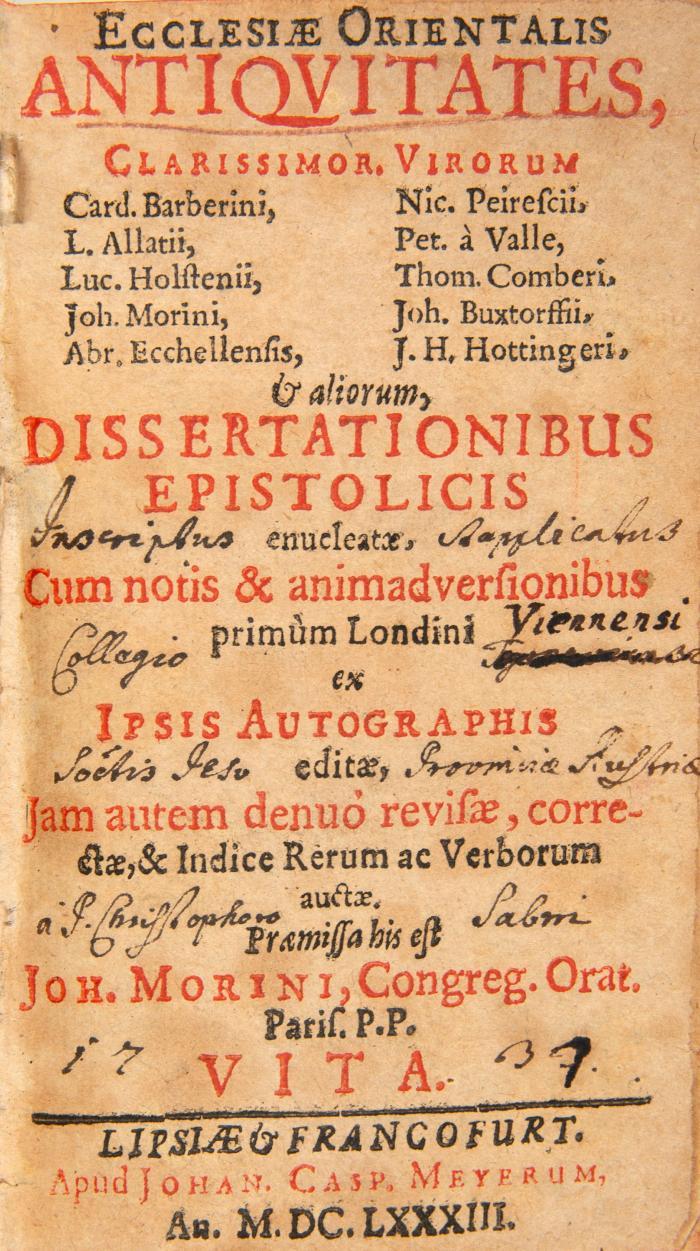 ECCLESIÆ ORIENTALIS
ANTIQVITATES,
CLARISSIMOR. VIRORUM
Card. Barberini,
L. Allatii,
Luc. Holſtenii,
Joh. Morini,
Abr. Ecchellenſis,
Nic. Peireſcii,
Pet. à Valle,
Thom. Comberi,
Joh. Buxtorffii,
J. H. Hottingeri,
& aliorum,
DISSERTATIONIBUS
EPISTOLICIS
Inscriptus enucleatæ, & applicatus
Cum notis & animadverſionibus
Collegio primùm Londini Viennensi
ex
IPSIS AUTOGRAPHIS
Soctis Jesu editæ, Provinciæ Austriæ
Jam autem denuò reviſæ, corre-
ctæ, & Indice Rerum ac Verborum
auctæ.
à P. Christophoro Sabri
Præmiſſa his eſt
JOH. MORINI, Congreg. Orat.
Pariſ. P.P.
17 VITA. 37.
LIPSIÆ & FRANCOFURT.
Apud JOHAN. CASP. MEYERUM,
An. M. DC. LXXXIII.